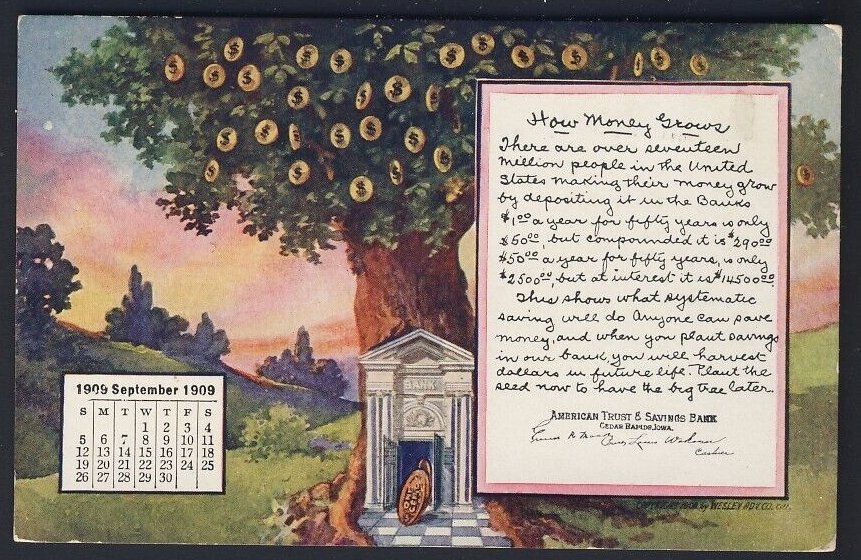 How Money Grows
There are over seventeen
million people in the United
States making their money grow
by depositing it in the Banks
$1.00 a year for fifty years is only
$50.00, but compounded it is $290.00
$50.00 a year for fifty years, is only
$2500.00, but at interest it is $14500.00.
This shows what systematic
saving will do Anyone can save
money, and when you plant savings
in our bank you will harvest
dollars in future life. Plant the
seed now to have the big tree later.
AMERICAN TRUST & SAVINGS BANK
CEDAR RAPIDS, IOWA.
Cashier
BANK
ONE CENT
1909 September 1909
S M T W T F S
1 2 3 4
5 6 7 8 9 10 11
12 13 14 15 16 17 18
19 20 21 22 23 24 25
26 27 28 29 30
by WESLEY ADV. CO.